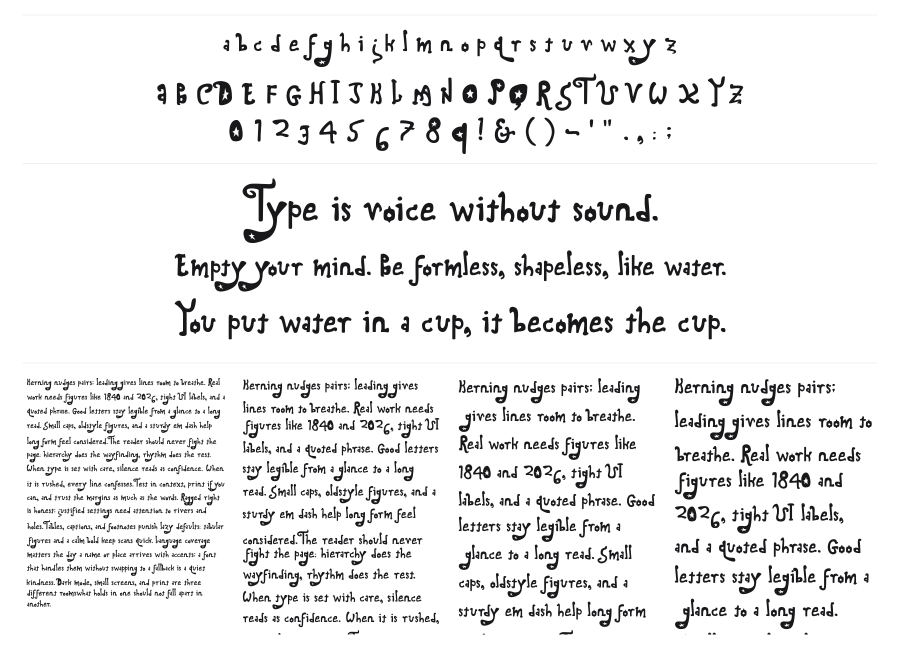 a b c d e f g h i j k l m n o p q r s t u v w x y z
A B C D E F G H I J K L M N O P Q R S T U V W X Y Z
0 1 2 3 4 5 6 7 8 9 ! & ( ) - ' " . , : ;
Type is voice without sound.
Empty your mind. Be formless, shapeless, like water.
You put water in a cup, it becomes the cup.
Kerning nudges pairs: leading gives lines room to breathe. Real
work needs figures like 1840 and 2026, tight UI labels, and a
quoted phrase. Good letters stay legible from a glance to a long
read. Small caps, oldstyle figures, and a sturdy em dash help
long form feel considered.The reader should never fight the
page: hierarchy does the wayfinding, rhythm does the rest.
When type is set with care, silence reads as confidence. When
it is rushed, every line confesses.Test in context, print if you
can, and trust the margins as much as the words. Ragged right
is honest: justified settings need attention to rivers and
holes.Tables, captions, and footnotes punish lazy defaults: tabular
figures and a calm bold keep scans quick. Language coverage
matters the day a name or place arrives with accents: a font
that handles them without swapping to a fallback is a quiet
kindness. Dark mode, small screens, and print are three
different rooms:what holds in one should not fall apart in
another.
Kerning nudges pairs: leading gives
lines room to breathe. Real work needs
figures like 1840 and 2026, tight UI
labels, and a quoted phrase. Good letters
stay legible from a glance to a long
read. Small caps, oldstyle figures, and a
sturdy em dash help long form feel
considered.The reader should never
fight the page: hierarchy does the
wayfinding, rhythm does the rest.
When type is set with care, silence
reads as confidence. When it is rushed,
Kerning nudges pairs: leading
gives lines room to breathe.
Real work needs figures like
1840 and 2026, tight UI
labels, and a quoted phrase. Good
letters stay legible from a
glance to a long read. Small
caps, oldstyle figures, and a
sturdy em dash help long form
Kerning nudges pairs:
leading gives lines room to
breathe. Real work needs
figures like 1840 and
2026, tight UI labels,
and a quoted phrase. Good
letters stay legible from a
glance to a long read.